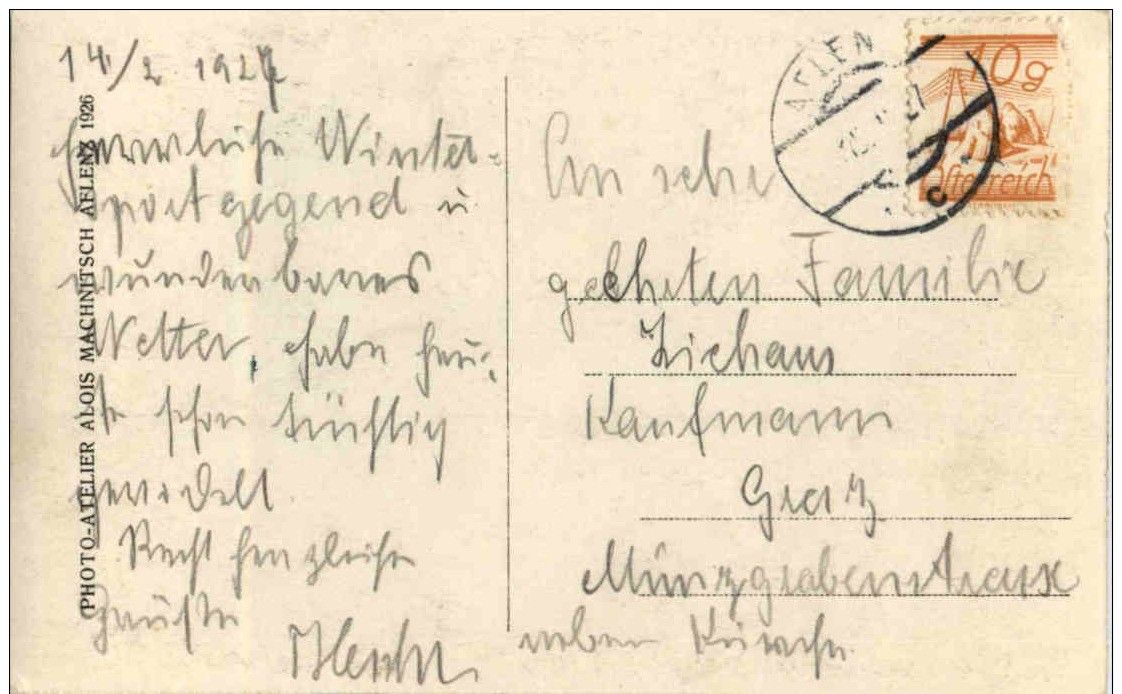 14/2 1927
Herrliche Winter-
sportgegend u.
wunderbares
Wetter, habe heu-
te schon tüchtig
gerodelt.
Recht herzliche
Grüße
PHOTO-ATELIER ALOIS MACHNITSCH AFLENZ 1926
AFLENZ
c
10g
Österreich
An sehr
geehrten Familie
Kaufmann
Graz
Münzgrabenstrasse
neben Kirche